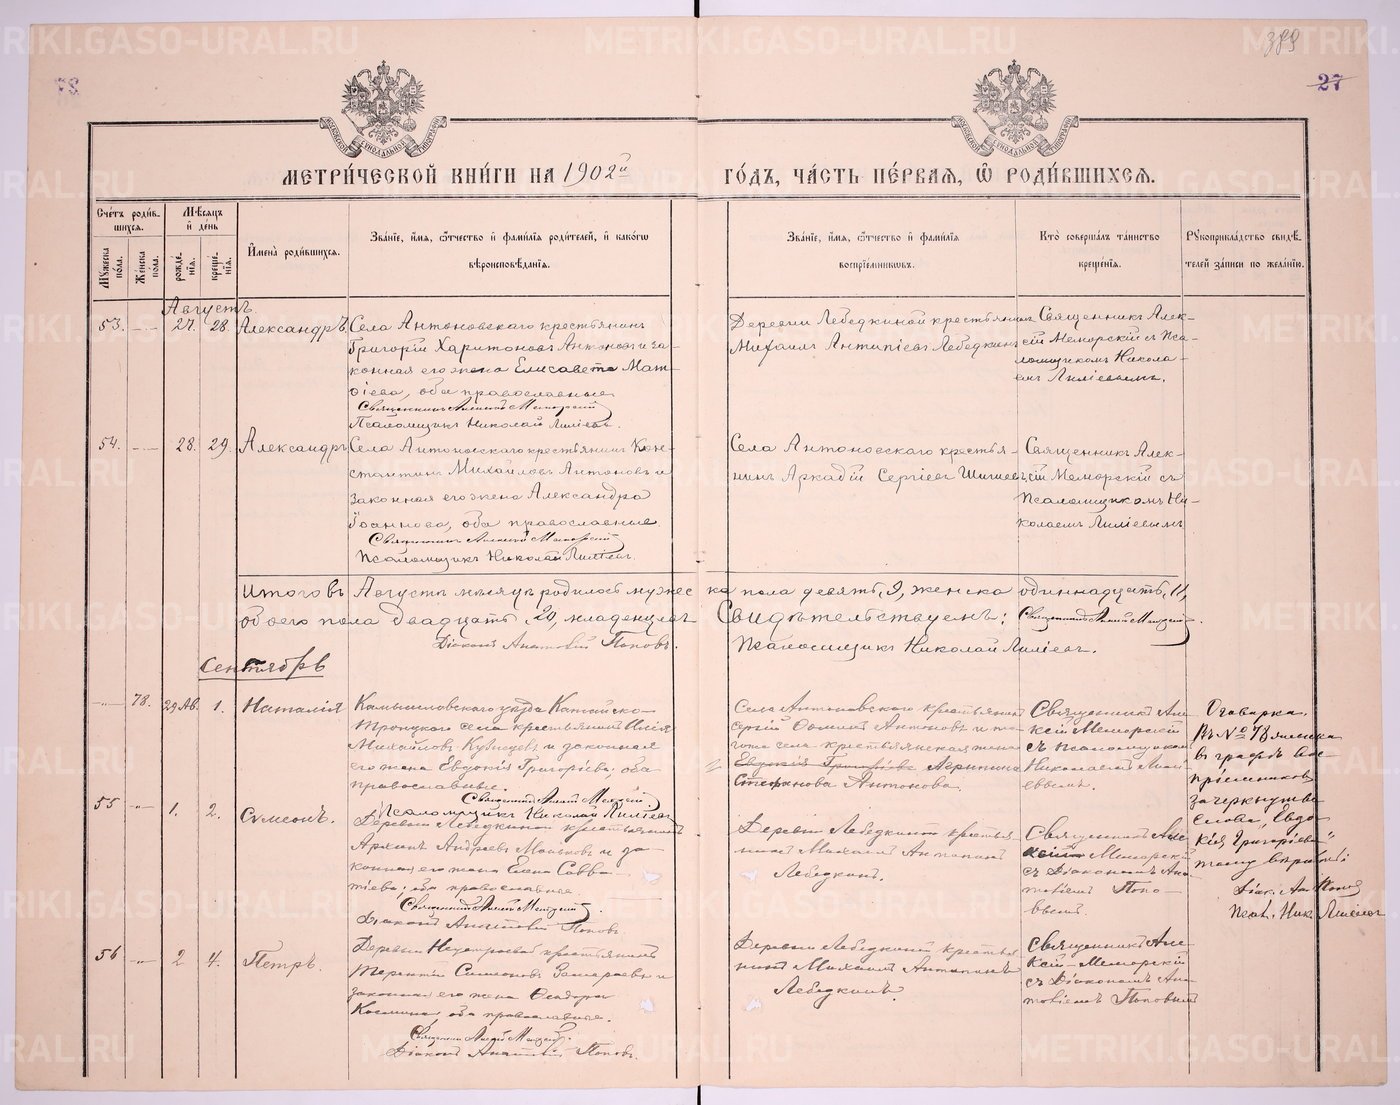 METRIKI.GASO-URAL.RU
389
27
МОСКОВСКОЙ СѴНОДАЛЬНОЙ ТИПОГРАФІИ
МОСКОВСКОЙ СѴНОДАЛЬНОЙ ТИПОГРАФІИ
МЕТРИ́ЧЕСКОЙ КНИ́ГИ НА 1902й
ГО́ДЪ, ЧА́СТЬ ПЕ́РВАЯ, Ѡ РОДИ́ВШИХСЯ.
Сче́тъ роди́в-
шихся.
Мꙋжеска по́ла.
Же́нска по́ла.
Мѣ́сяцъ
и де́нь
рожде́-
нїя.
креще́-
нїя.
И҆мена̀ роди́вшихся.
Зва́нїе, и҆́мя, ѻ҆́тчество и҆ фами́лїя роди́телей, и҆ како́гѡ
вѣроисповѣ́данїя.
Зва́нїе, и҆́мя, ѻ҆́тчество и҆ фами́лїя
воспрїе́мниковъ.
Кто̀ соверша́лъ та́инство
креще́нїя.
Рꙋкоприкла́дство свидѣ́-
телей за́писи по жела́нїю.
Августъ
53. — 27. 28 Александръ
Села Антоновскаго крестьянинъ
Григорій Харитоновъ Антоновъ и за-
конная его жена Елисавета Мат-
ѳіева, оба православные
Священникъ Алексій Меморскій
Псаломщикъ Николай Лиліевъ.
Деревни Лебедкиной крестьянинъ
Михаилъ Антипіевъ Лебедкинъ
Священникъ Алек-
сій Меморскій съ Пса-
ломщикомъ Никола-
емъ Лиліевымъ.
54. — 28. 29. Александръ
Села Антоновскаго крестьянинъ Кон-
стантинъ Михайловъ Антоновъ и
законная его жена Александра
Іоаннова, оба православные
Священникъ Алексій Меморскій
Псаломщикъ Николай Лиліевъ.
Села Антоновскаго крестья-
нинъ Аркадій Сергіевъ
Священникъ Алек-
сій Меморскій съ
Псаломщикомъ Ни-
колаемъ Лиліевымъ
Итого въ Августѣ мѣсяцѣ родилось мужеска пола девять, 9, женска одиннадцать, 11,
обоего пола двадцать, 20, младенцевъ Свидѣтельствуемъ: Священникъ Алексій Меморскій.
Діаконъ Анатолій Поповъ. Псаломщикъ Николай Лиліевъ.
Сентябрь
— 78. 29 Ав. 1. Наталія
Камышловскаго уѣзда Катайско-
Троицкаго села крестьянинъ Илія
Михайловъ Кузнецовъ и законная
его жена Евдокія Григоріева, оба
православные.
Священникъ Алексій Меморскій.
Псаломщикъ Николай Лиліевъ
Села Антоновскаго крестьянинъ
Сергій Антоновъ и то-
гоже села крестьянская жена
Евдокія Григоріева Агрипина
Стефанова Антонова.
Священникъ Але-
ксій Меморскій
съ псаломщикомъ
Николаемъ Лилі-
евымъ.
Оговорка.
Въ № 78
въ графѣ вос-
пріемниковъ
зачеркнутые
слова „Евдо-
кія Григоріева"
Діак. Ан. Поповъ
Псал. Ник. Лиліевъ
55 — 1. 2. Сѵмеонъ.
Деревни Лебедкиной крестьянинъ
Андреевъ и за-
конная его жена Елена Савва-
тіева, оба православные.
Священникъ Алексій Меморскій.
Діаконъ Анатолій Поповъ
Деревни Лебедкиной крестья-
нинъ Михаилъ Антипинъ
Лебедкинъ.
Священникъ Але-
ксій Меморскій
съ Діакономъ Ана-
толіемъ Попо-
вымъ.
56 — 2 4. Петръ.
Деревни крестьянинъ
Терентій Симоновъ и
законная его жена Ѳеодора
Космина, оба православные.
Священникъ Алексій Меморскій.
Діаконъ Анатолій Поповъ.
Деревни Лебедкиной крестья-
нинъ Михаилъ Антипинъ
Лебедкинъ.
Священникъ Але-
ксій Меморскій
съ Діакономъ Ана-
толіемъ Поповымъ